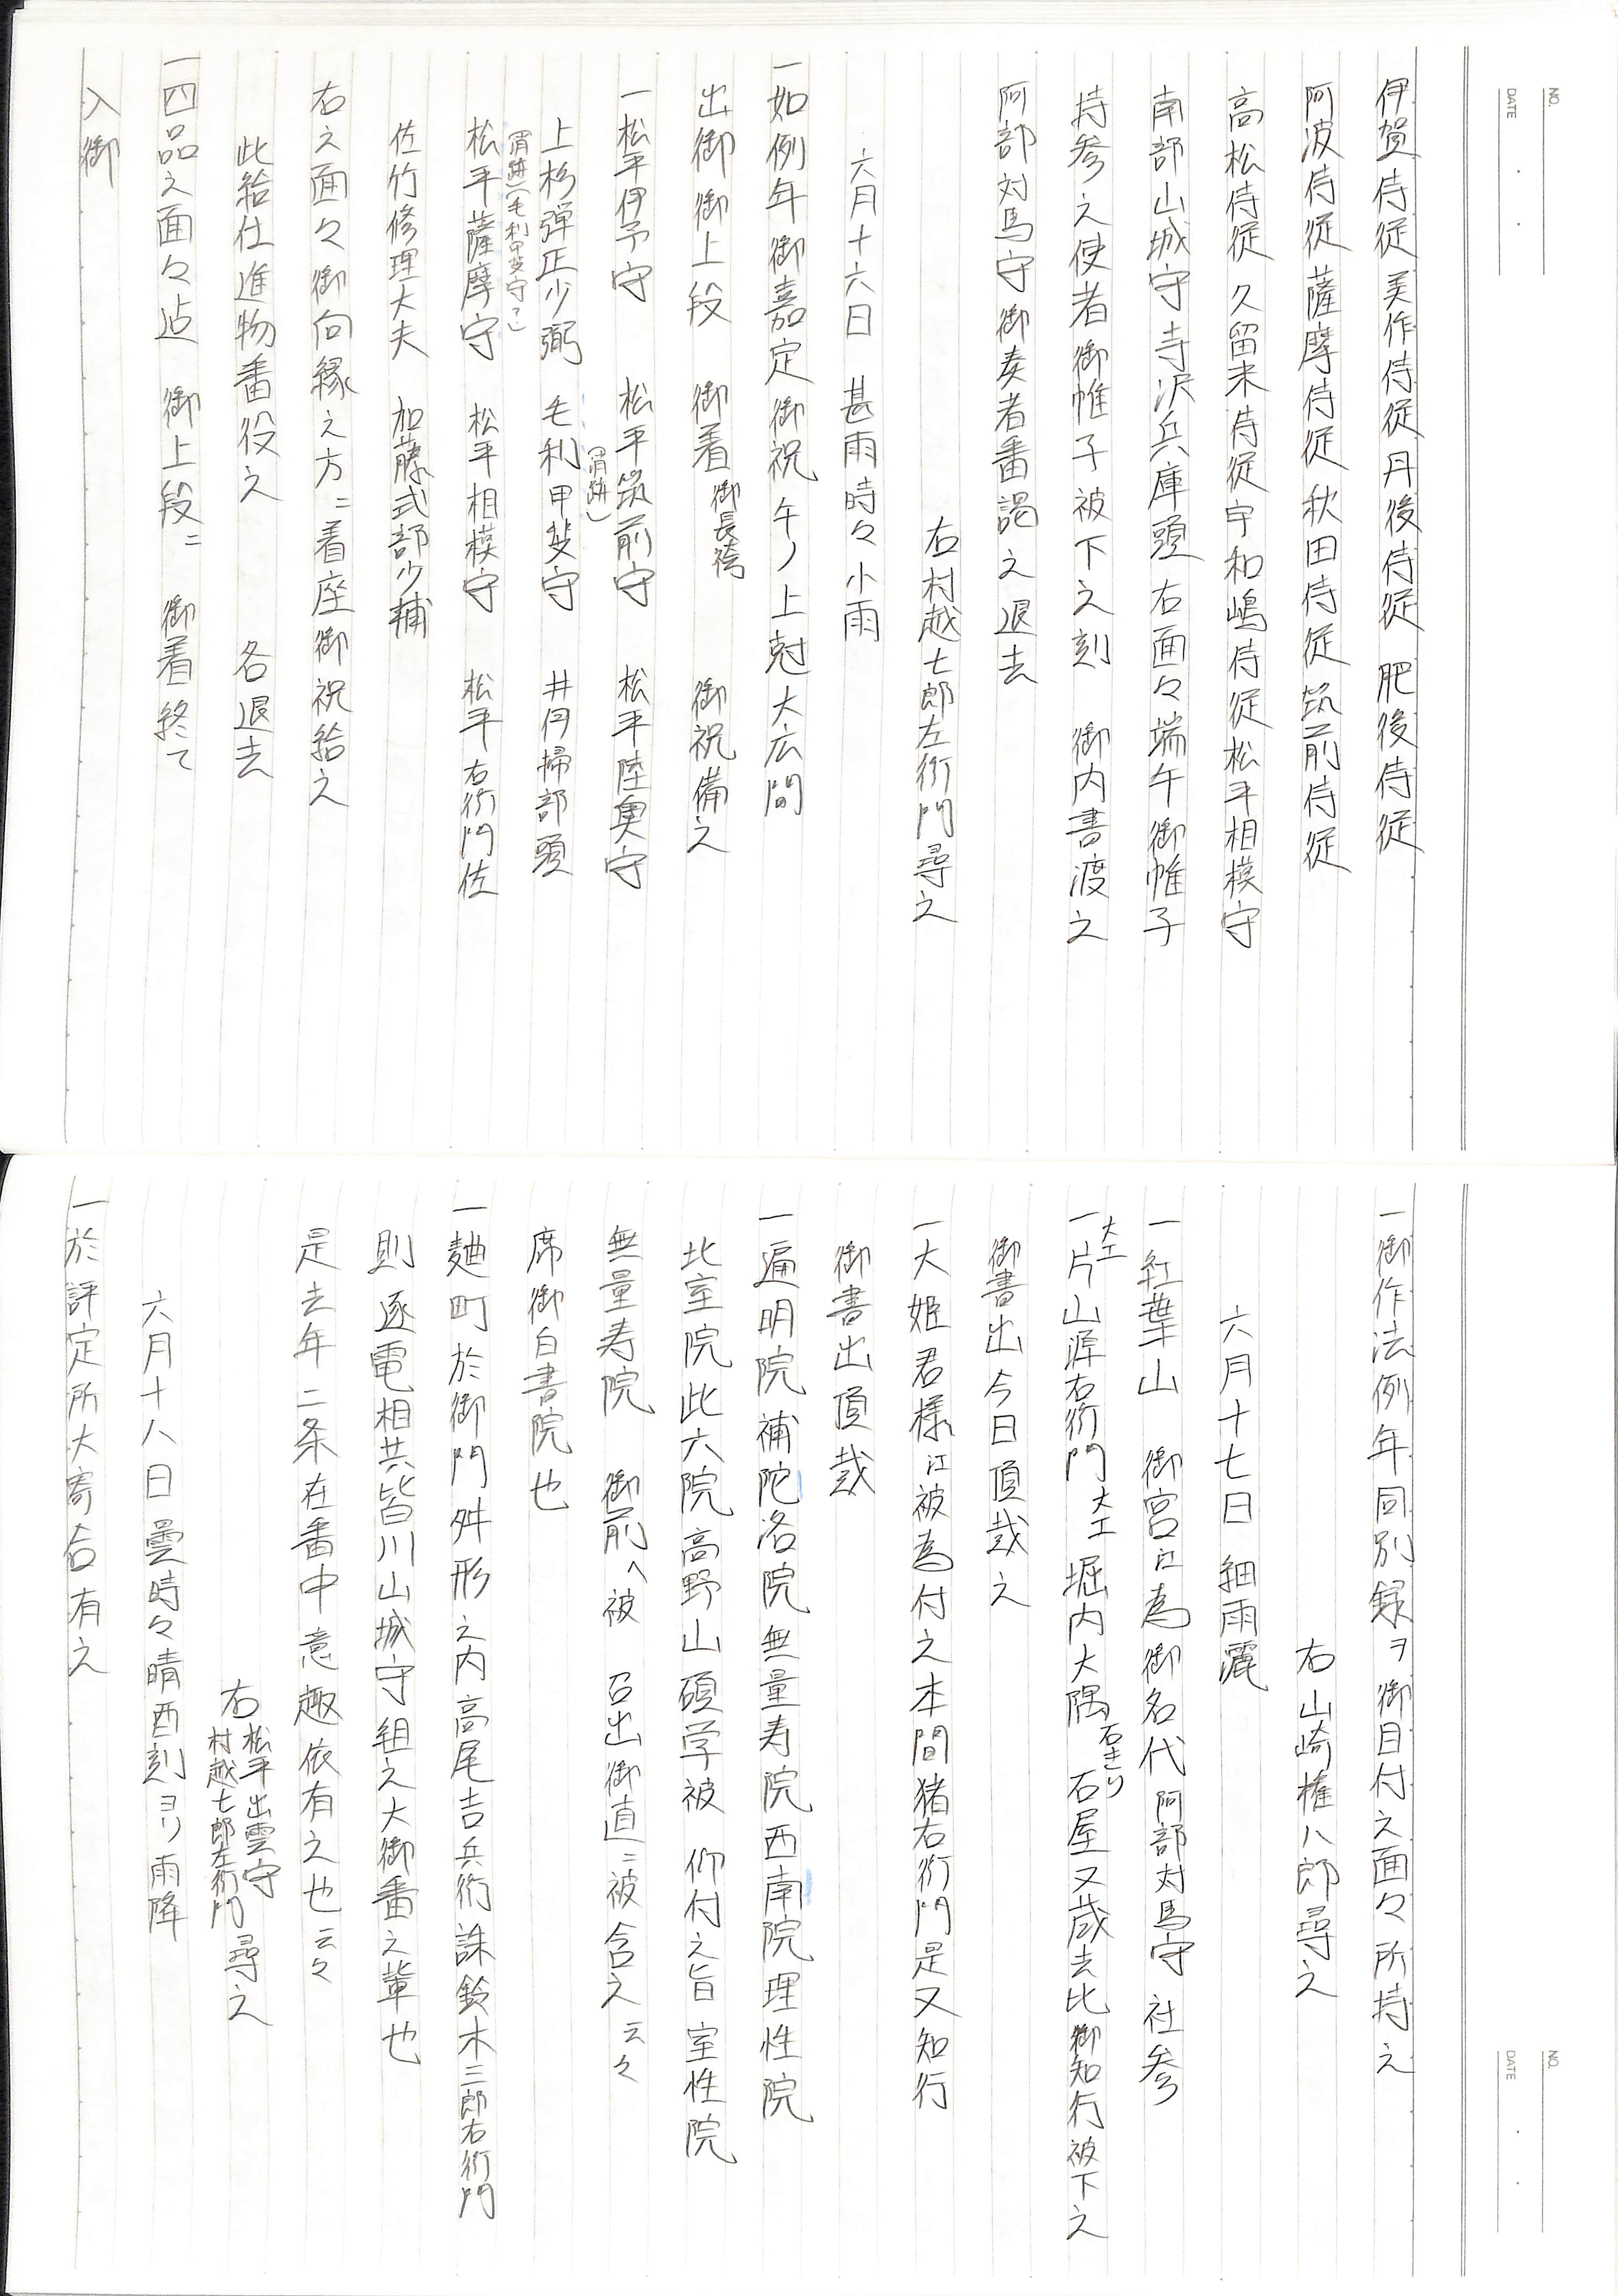 NO.
DATE
伊賀侍従 美作侍従 丹後侍従 肥後侍従
阿波侍従 薩摩侍従 秋田侍従 筑前侍従
高松侍従 久留米侍従 宇和嶋侍従 松平相模守
南部山城守 寺沢兵庫頭 右面々端午御帷子
持参之使者御帷子被下之刻 御内書渡之
阿部対馬守御奏者番謁之退去
右村越七郎左衛門尋之
六月十六日 甚雨時々小雨
一如例年御嘉定御祝午ノ上尅大広間
出御御上段 御着御長袴 御祝備之
一松平伊予守 松平筑前守 松平陸奥守
(肩跡)
上杉弾正少弼 毛利甲斐守 井伊掃部頭
(肩跡)(毛利甲斐守て)
松平薩摩守 松平相模守 松平右衛門佐
佐竹修理大夫 加藤式部少輔
右之面々御向縁之方ニ着座御祝給之
此給仕進物番役之 各退去
一四品之面々迠 御上段ニ 御着終て
入御
NO.
DATE
一御作法例年同別録ヲ御目付之面々所持之
右山崎権八郎尋之
六月十七日 細雨灑
一紅葉山 御宮江為御名代阿部対馬守社参
大工
一片山源右衛門 大工 堀内大隅 石きり 石屋又蔵去比御知行被下之
御書出今日頂戴之
一大姫君様江被為付之本間猪右衛門是又知行
御書出頂戴
一遍明院補陀洛院無量寿院西南院理性院
北室院此六院高野山碩学被 仰付之旨室性院
無量寿院 御前へ被 召出御直ニ被含之云々
席御白書院也
一麹町於御門舛形之内高尾吉兵衛誅鈴木三郎右衛門
則逐電相共皆川山城守組之大御番之輩也
是去年二条在番中意趣依有之也云々
右松平出雲守 村越七郎左衛門 尋之
六月十八日曇時々晴酉刻ヨリ雨降
一於評定所大寄合有之